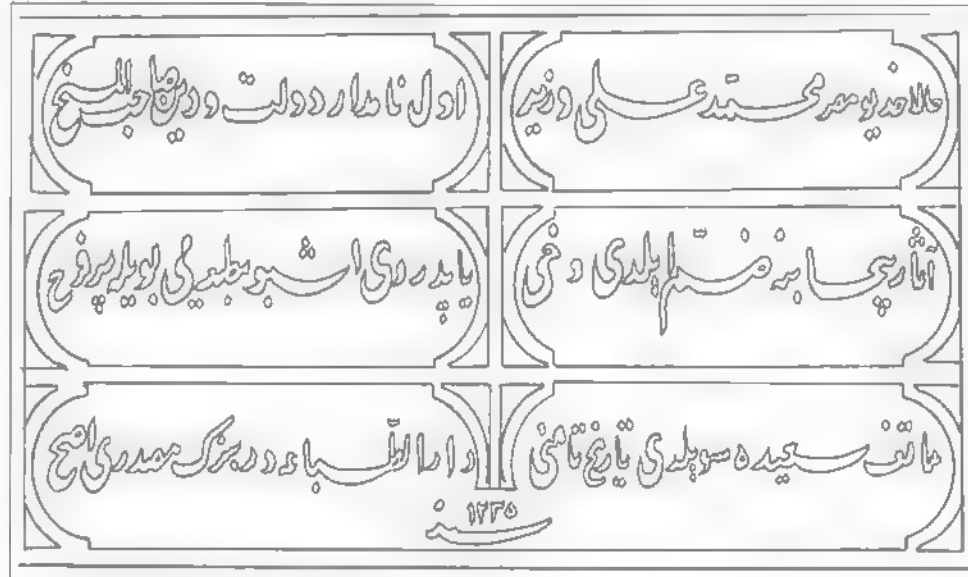 حالا خدیو مصر محمّد علی وزیر
اول نامدار دولت و دین صاحب المنح
آثار بیحسابنه ضمّ ایلدی دخی
یاپدردی اشبو مطبعه‌یی بویله پرفرح
هاتف سعیده سویلدی تاریخ تامنی
دار الطّباعه در هنرک مصدری اصح
سنه ۱۲۳۵